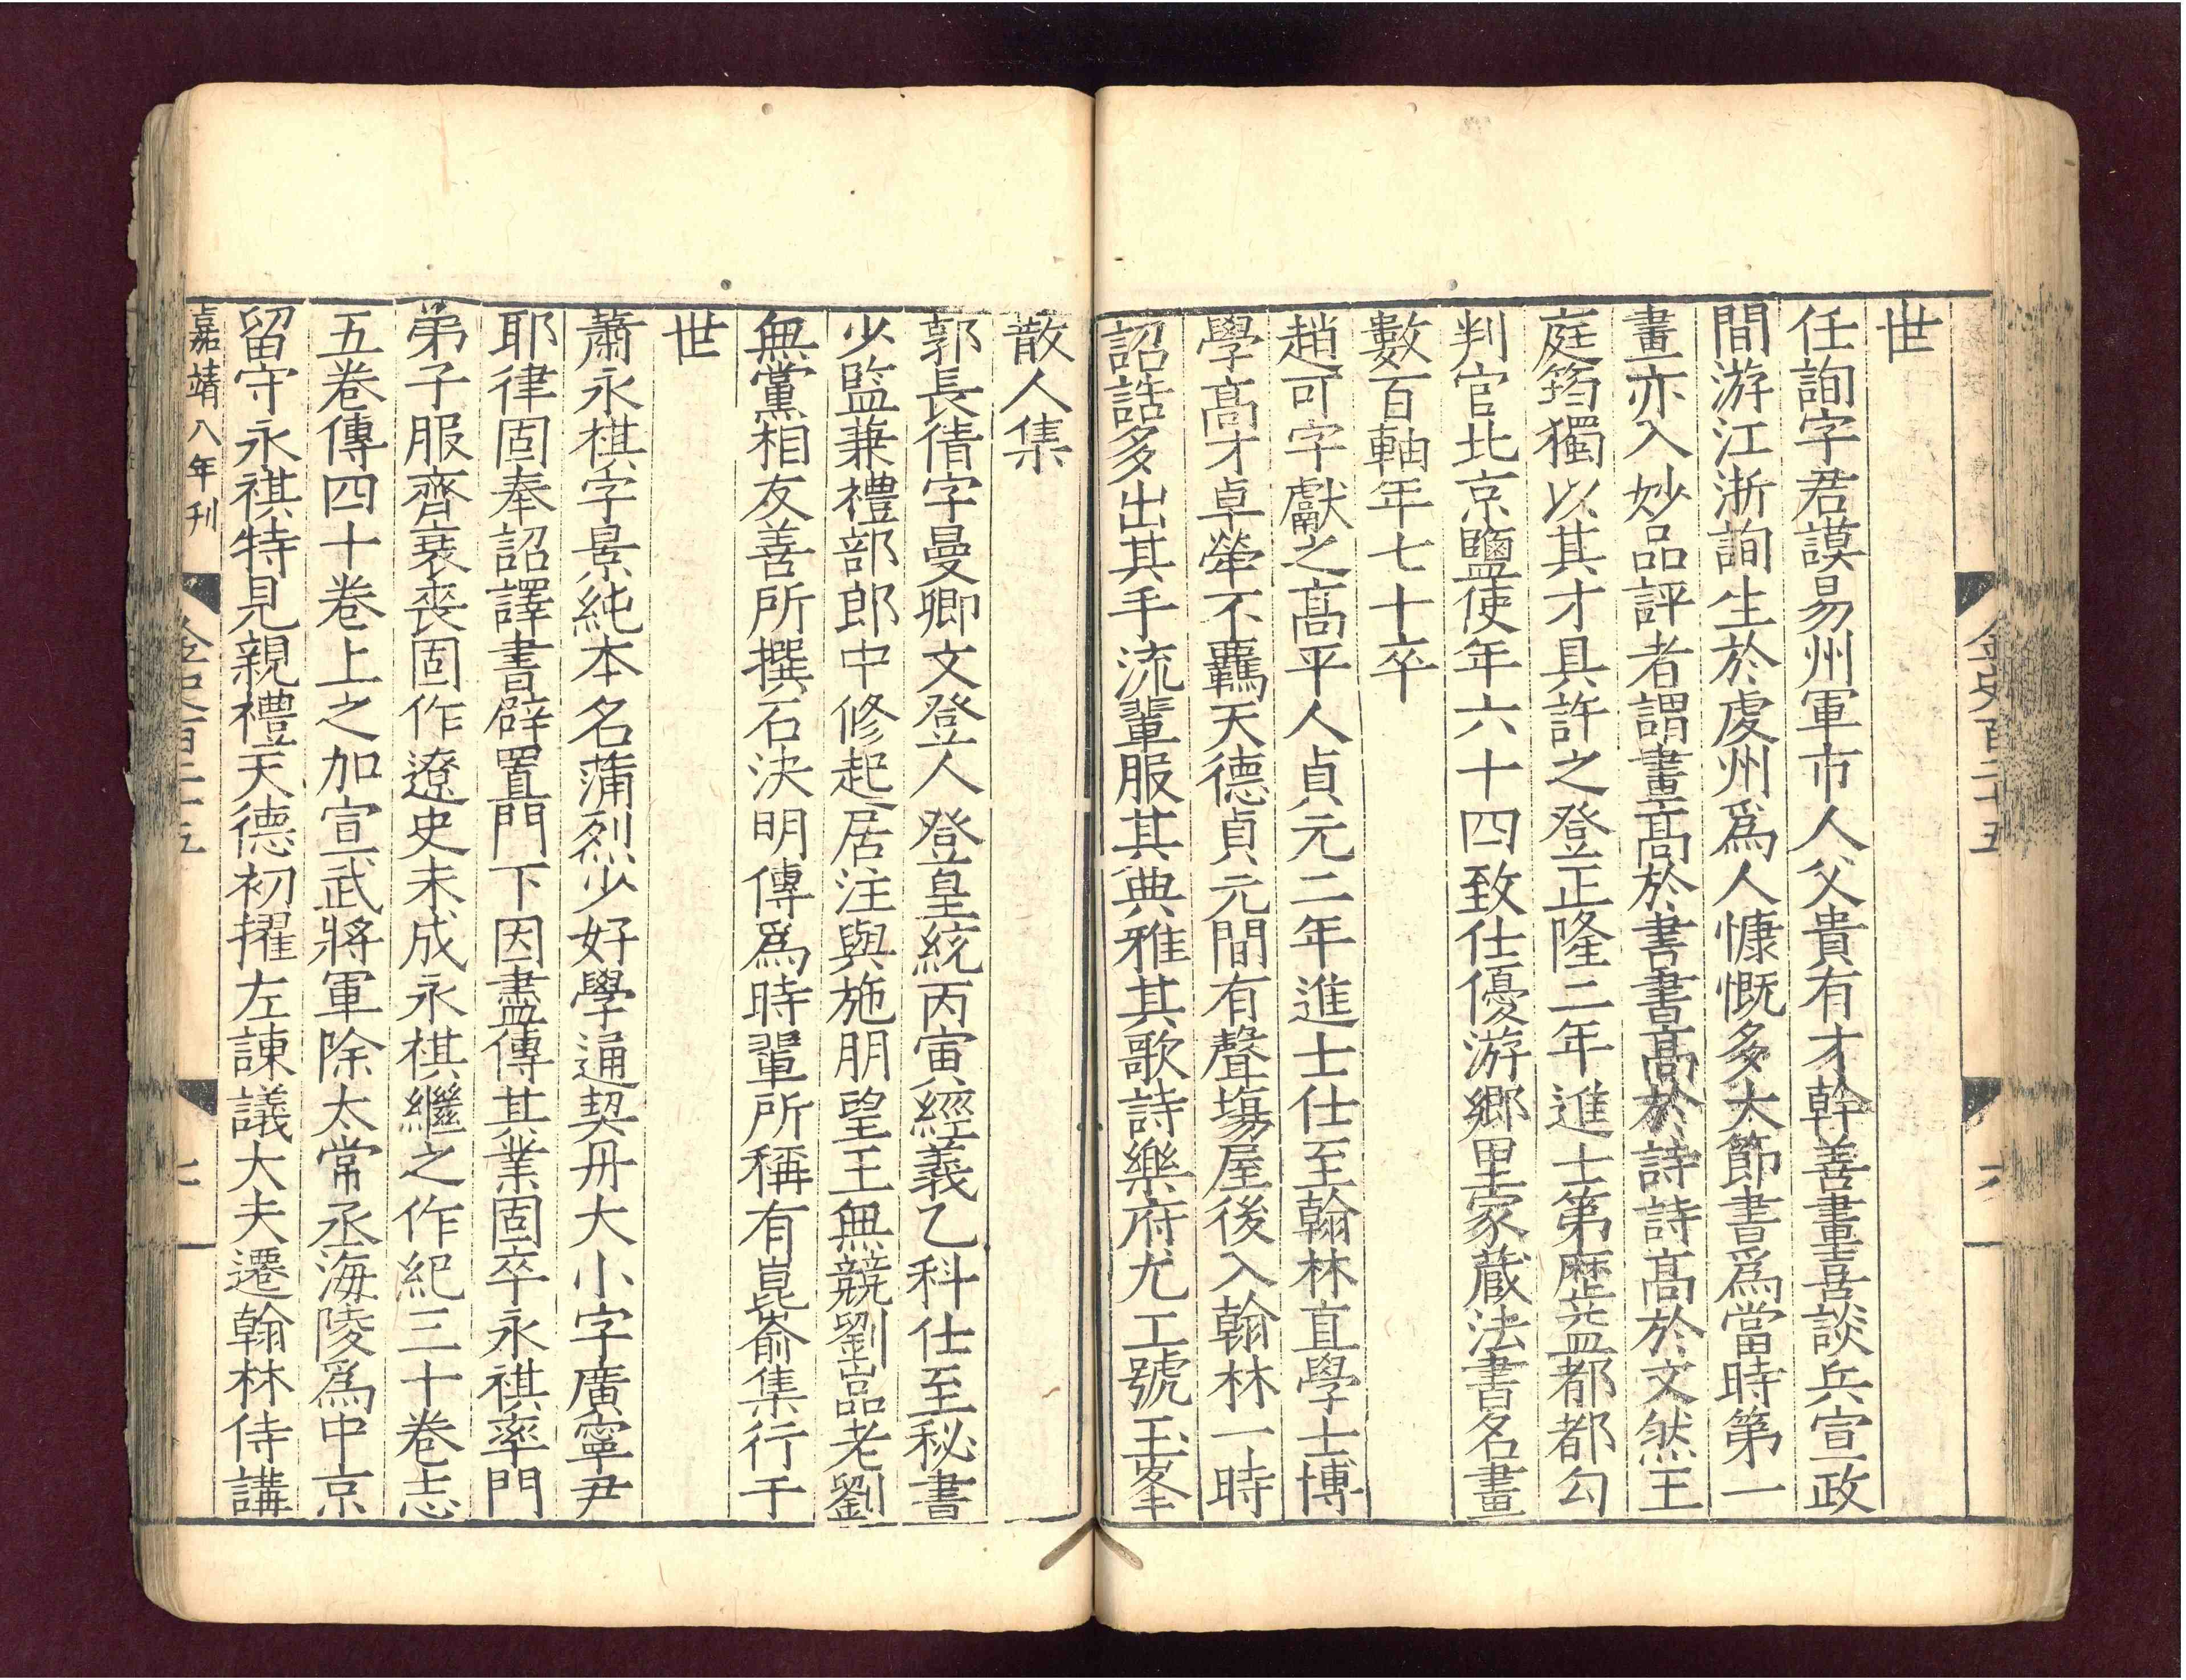 金史百二十五
六
世
任詢字君謨易州軍市人父貴有才幹善畫喜談兵宣政
間游江浙詢生於虔州爲人慷慨多大節書爲當時第一
畫亦入妙品評者謂畫高於書書高於詩詩高於文然王
庭筠獨以其才具許之登正隆二年進士第歷益都都勾
判官北京鹽使年六十四致仕優游鄉里家藏法書名畫
數百軸年七十卒
趙可字獻之高平人貞元二年進士仕至翰林直學士博
學高才卓犖不羈天德貞元間有聲塲屋後入翰林一時
詔誥多出其手流輩服其典雅其歌詩樂府尤工號玉峯
散人集
郭長倩字曼卿文登人登皇統丙寅經義乙科仕至秘書
少監兼禮部郎中修起居注與施朋望王無競劉嵓老劉
無黨相友善所撰石決明傳爲時輩所稱有崑崙集行于
世
蕭永祺字景純本名蒲烈少好學通契丹大小字廣寧尹
耶律固奉詔譯書辟置門下因盡傳其業固卒永祺率門
弟子服齊衰喪固作遼史未成永祺繼之作紀三十卷志
五卷傳四十卷上之加宣武將軍除太常丞海陵爲中京
留守永祺特見親禮天德初擢左諫議大夫遷翰林侍講
嘉靖八年刊
金史百二十五
七